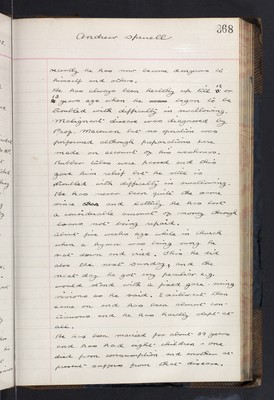 368
Andrew Spruell
recently he has now become dangerous to
himself and others.
He has always been healthy up till 12 or
13 years ago when he began to be
troubled with difficulty in swallowing.
Malignant disease was diagnosed by
Prof. but no operation was
performed although preparations were
made on account of his weakness.
Rubber tubes were passed and this
gave him relief but he still is
troubled with difficulty in swallowing.
He has never been quite the same
since and lately he has lost
a considerable amount of money through
loans not being repaid.
About five weeks ago while in church
when a hymn was being sung he
sat down and cried. This he did
also the next Sunday, and the
next day he got very peculiar e.g.
would stand with a fixed gaze seeing
visions as he said. Excitement then
came on and has been almost con-
tinuous and he has hardly slept at
all.
He has been married for about 29 years
and has had eight children - one
died from consumption and another at
present suffers from that disease.